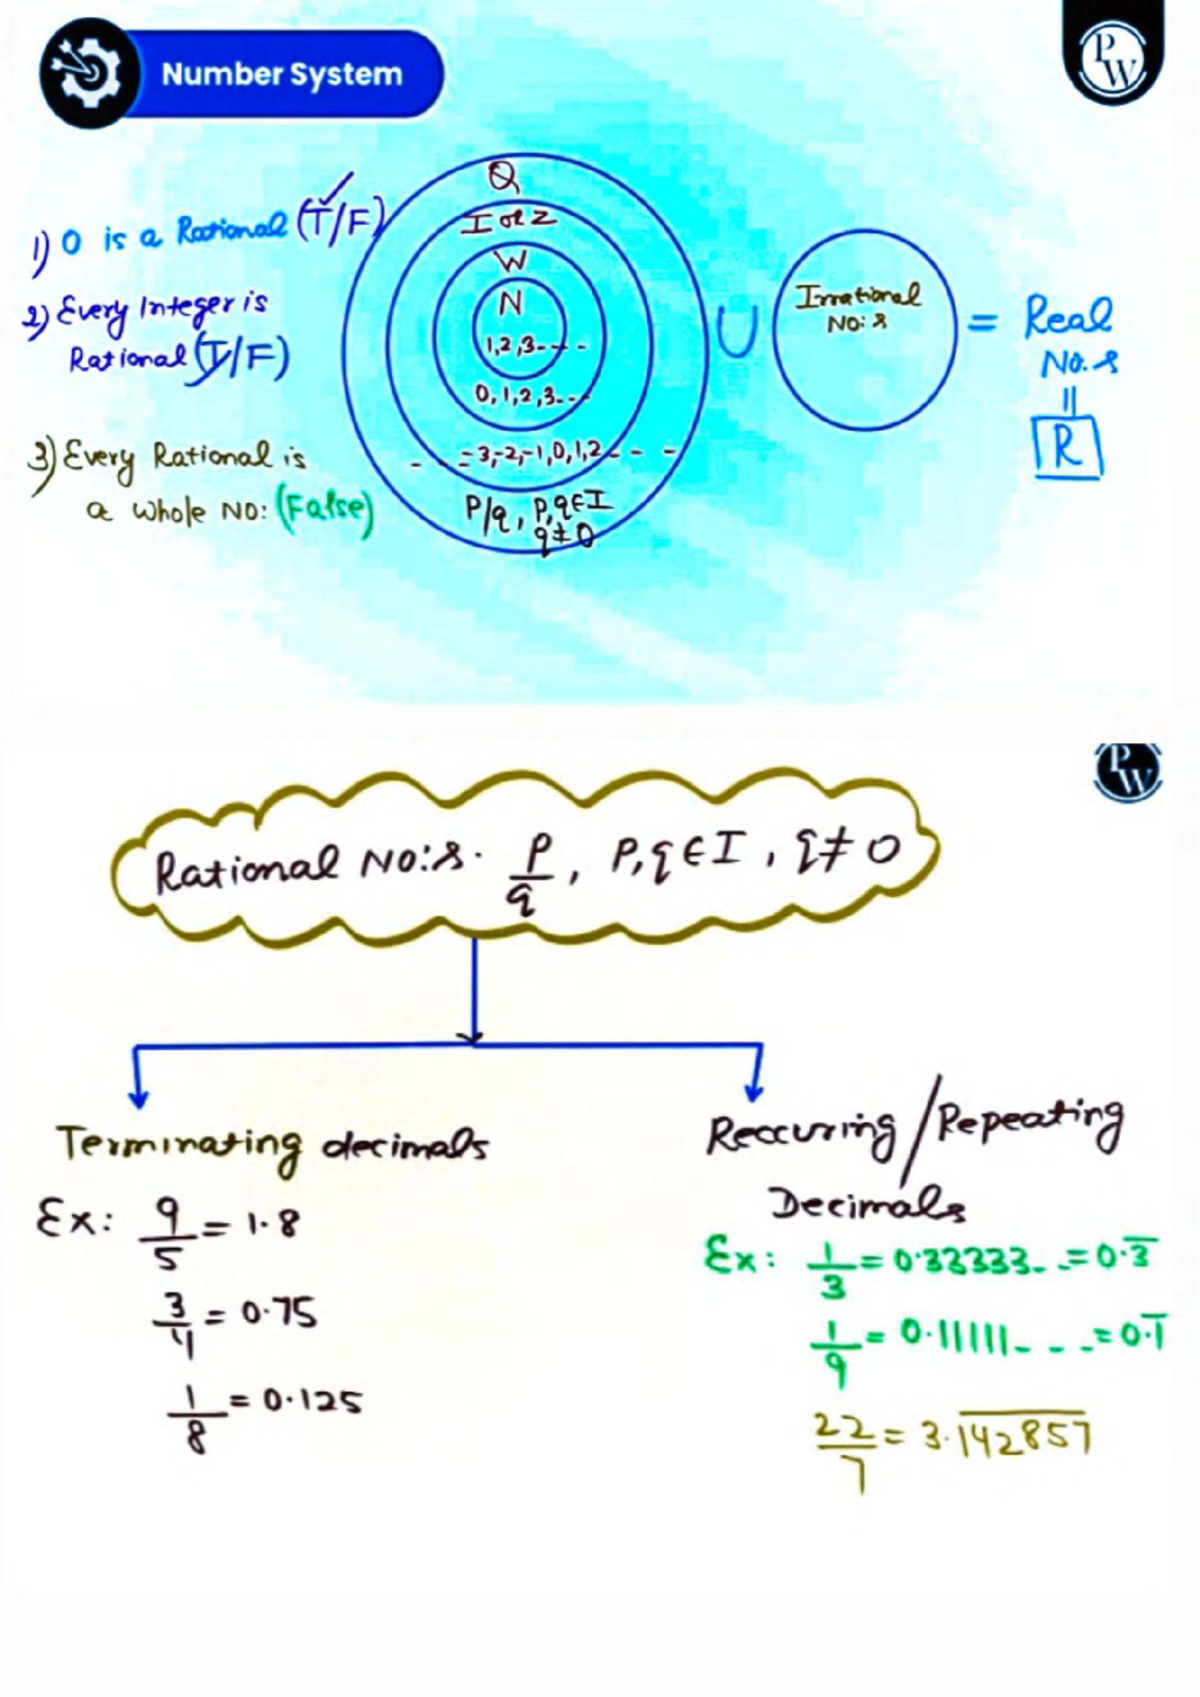 Number System
PW
1) 0 is a Rational (T/F)
2) Every Integer is
Rational (T/F)
3) Every Rational is
a whole No: (False)
Q
I or Z
W
N
1,2,3----
0,1,2,3---
- - -3,-2,-1,0,1,2- - -
P/q, P,q∈I
q≠0
∪
Irrational
No:s
= Real
No.s
=
R
PW
Rational No:s. P/q, P,q∈I, q≠0
Terminating decimals
Ex: 9/5 = 1.8
3/4 = 0.75
1/8 = 0.125
Reccuring/Repeating
Decimals
Ex: 1/3 = 0.33333- -= 0.3̅
1/9 = 0.11111- - -= 0.1̅
22/7 = 3.1̅4̅2̅8̅5̅7̅